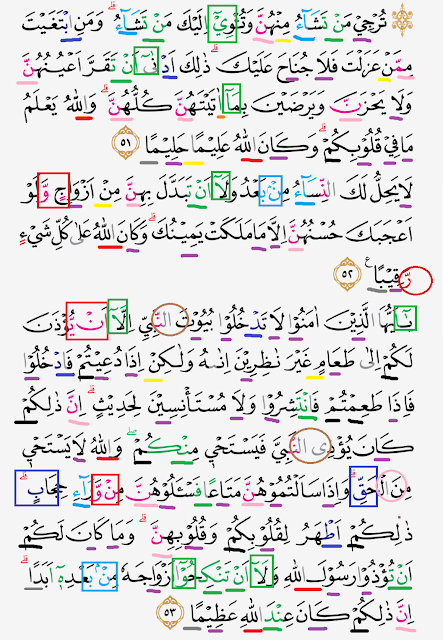 ۞ تُرْجِيْ مَنْ تَشَاۤءُ مِنْهُنَّ وَتُـْٔوِيْٓ اِلَيْكَ مَنْ تَشَاۤءُۗ وَمَنِ ابْتَغَيْتَ
مِمَّنْ عَزَلْتَ فَلَا جُنَاحَ عَلَيْكَۗ ذٰلِكَ اَدْنٰىٓ اَنْ تَقَرَّ اَعْيُنُهُنَّ
وَلَا يَحْزَنَّ وَيَرْضَيْنَ بِمَآ اٰتَيْتَهُنَّ كُلُّهُنَّۗ وَاللّٰهُ يَعْلَمُ
مَا فِيْ قُلُوْبِكُمْۗ وَكَانَ اللّٰهُ عَلِيْمًا حَلِيْمًا ٥١
لَا يَحِلُّ لَكَ النِّسَاۤءُ مِنْۢ بَعْدُ وَلَآ اَنْ تَبَدَّلَ بِهِنَّ مِنْ اَزْوَاجٍ وَّلَوْ
اَعْجَبَكَ حُسْنُهُنَّ اِلَّا مَا مَلَكَتْ يَمِيْنُكَۗ وَكَانَ اللّٰهُ عَلٰى كُلِّ شَيْءٍ
رَّقِيْبًا ࣖ ٥٢
يٰٓاَيُّهَا الَّذِيْنَ اٰمَنُوْا لَا تَدْخُلُوْا بُيُوْتَ النَّبِيِّ اِلَّآ اَنْ يُّؤْذَنَ
لَكُمْ اِلٰى طَعَامٍ غَيْرَ نٰظِرِيْنَ اِنٰىهُ وَلٰكِنْ اِذَا دُعِيْتُمْ فَادْخُلُوْا
فَاِذَا طَعِمْتُمْ فَانْتَشِرُوْا وَلَا مُسْتَأْنِسِيْنَ لِحَدِيْثٍۗ اِنَّ ذٰلِكُمْ
كَانَ يُؤْذِى النَّبِيَّ فَيَسْتَحْيٖ مِنْكُمْۖ وَاللّٰهُ لَا يَسْتَحْيٖ
مِنَ الْحَقِّۗ وَاِذَا سَاَلْتُمُوْهُنَّ مَتَاعًا فَسْـَٔلُوْهُنَّ مِنْ وَّرَاۤءِ حِجَابٍۗ
ذٰلِكُمْ اَطْهَرُ لِقُلُوْبِكُمْ وَقُلُوْبِهِنَّۗ وَمَا كَانَ لَكُمْ
اَنْ تُؤْذُوْا رَسُوْلَ اللّٰهِ وَلَآ اَنْ تَنْكِحُوْٓا اَزْوَاجَهٗ مِنْۢ بَعْدِهٖٓ اَبَدًاۗ
اِنَّ ذٰلِكُمْ كَانَ عِنْدَ اللّٰهِ عَظِيْمًا ٥٣